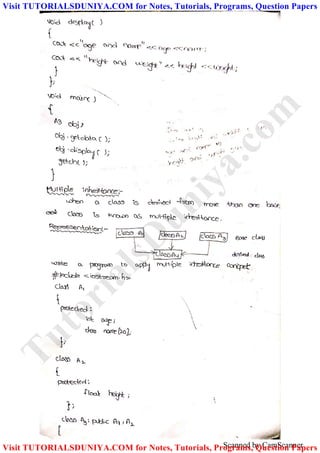 Visit TUTORIALSDUNIYA.COM for Notes, Tutorials, Programs, Question Papers
void display( )
{
cout <<"age and name" <<age <<name;
cout << "height and weight" << height <<weight;
}
};
void main( )
{
A3 obj;
obj.getdata( );
obj.display( );
getch( );
}
Multiple inheritance:-
when a class is derived from more than one base
class is known as multiple inheritance.
Representation:-
class A1 class A2 class A3 base class
class A4 derived class
write a program to apply multiple inheritance concept
#include <iostream.h>
class A1
{
protected:
int age;
char name[20];
};
class A2
{
protected:
float height;
};
class A3: public A1, A2
{
TutorialsDuniya.com
Scanned by CamScanner
Visit TUTORIALSDUNIYA.COM for Notes, Tutorials, Programs, Question Papers